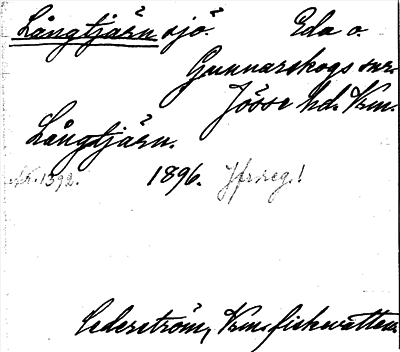 Långtjärn sjö. Eda o.
Gunnarskogs snr.
Jösse hd. Vrm.
Långtjärn.
Nr. 1392. 1896. Jfr reg.!
Cederström, Vrm. fiskvatten